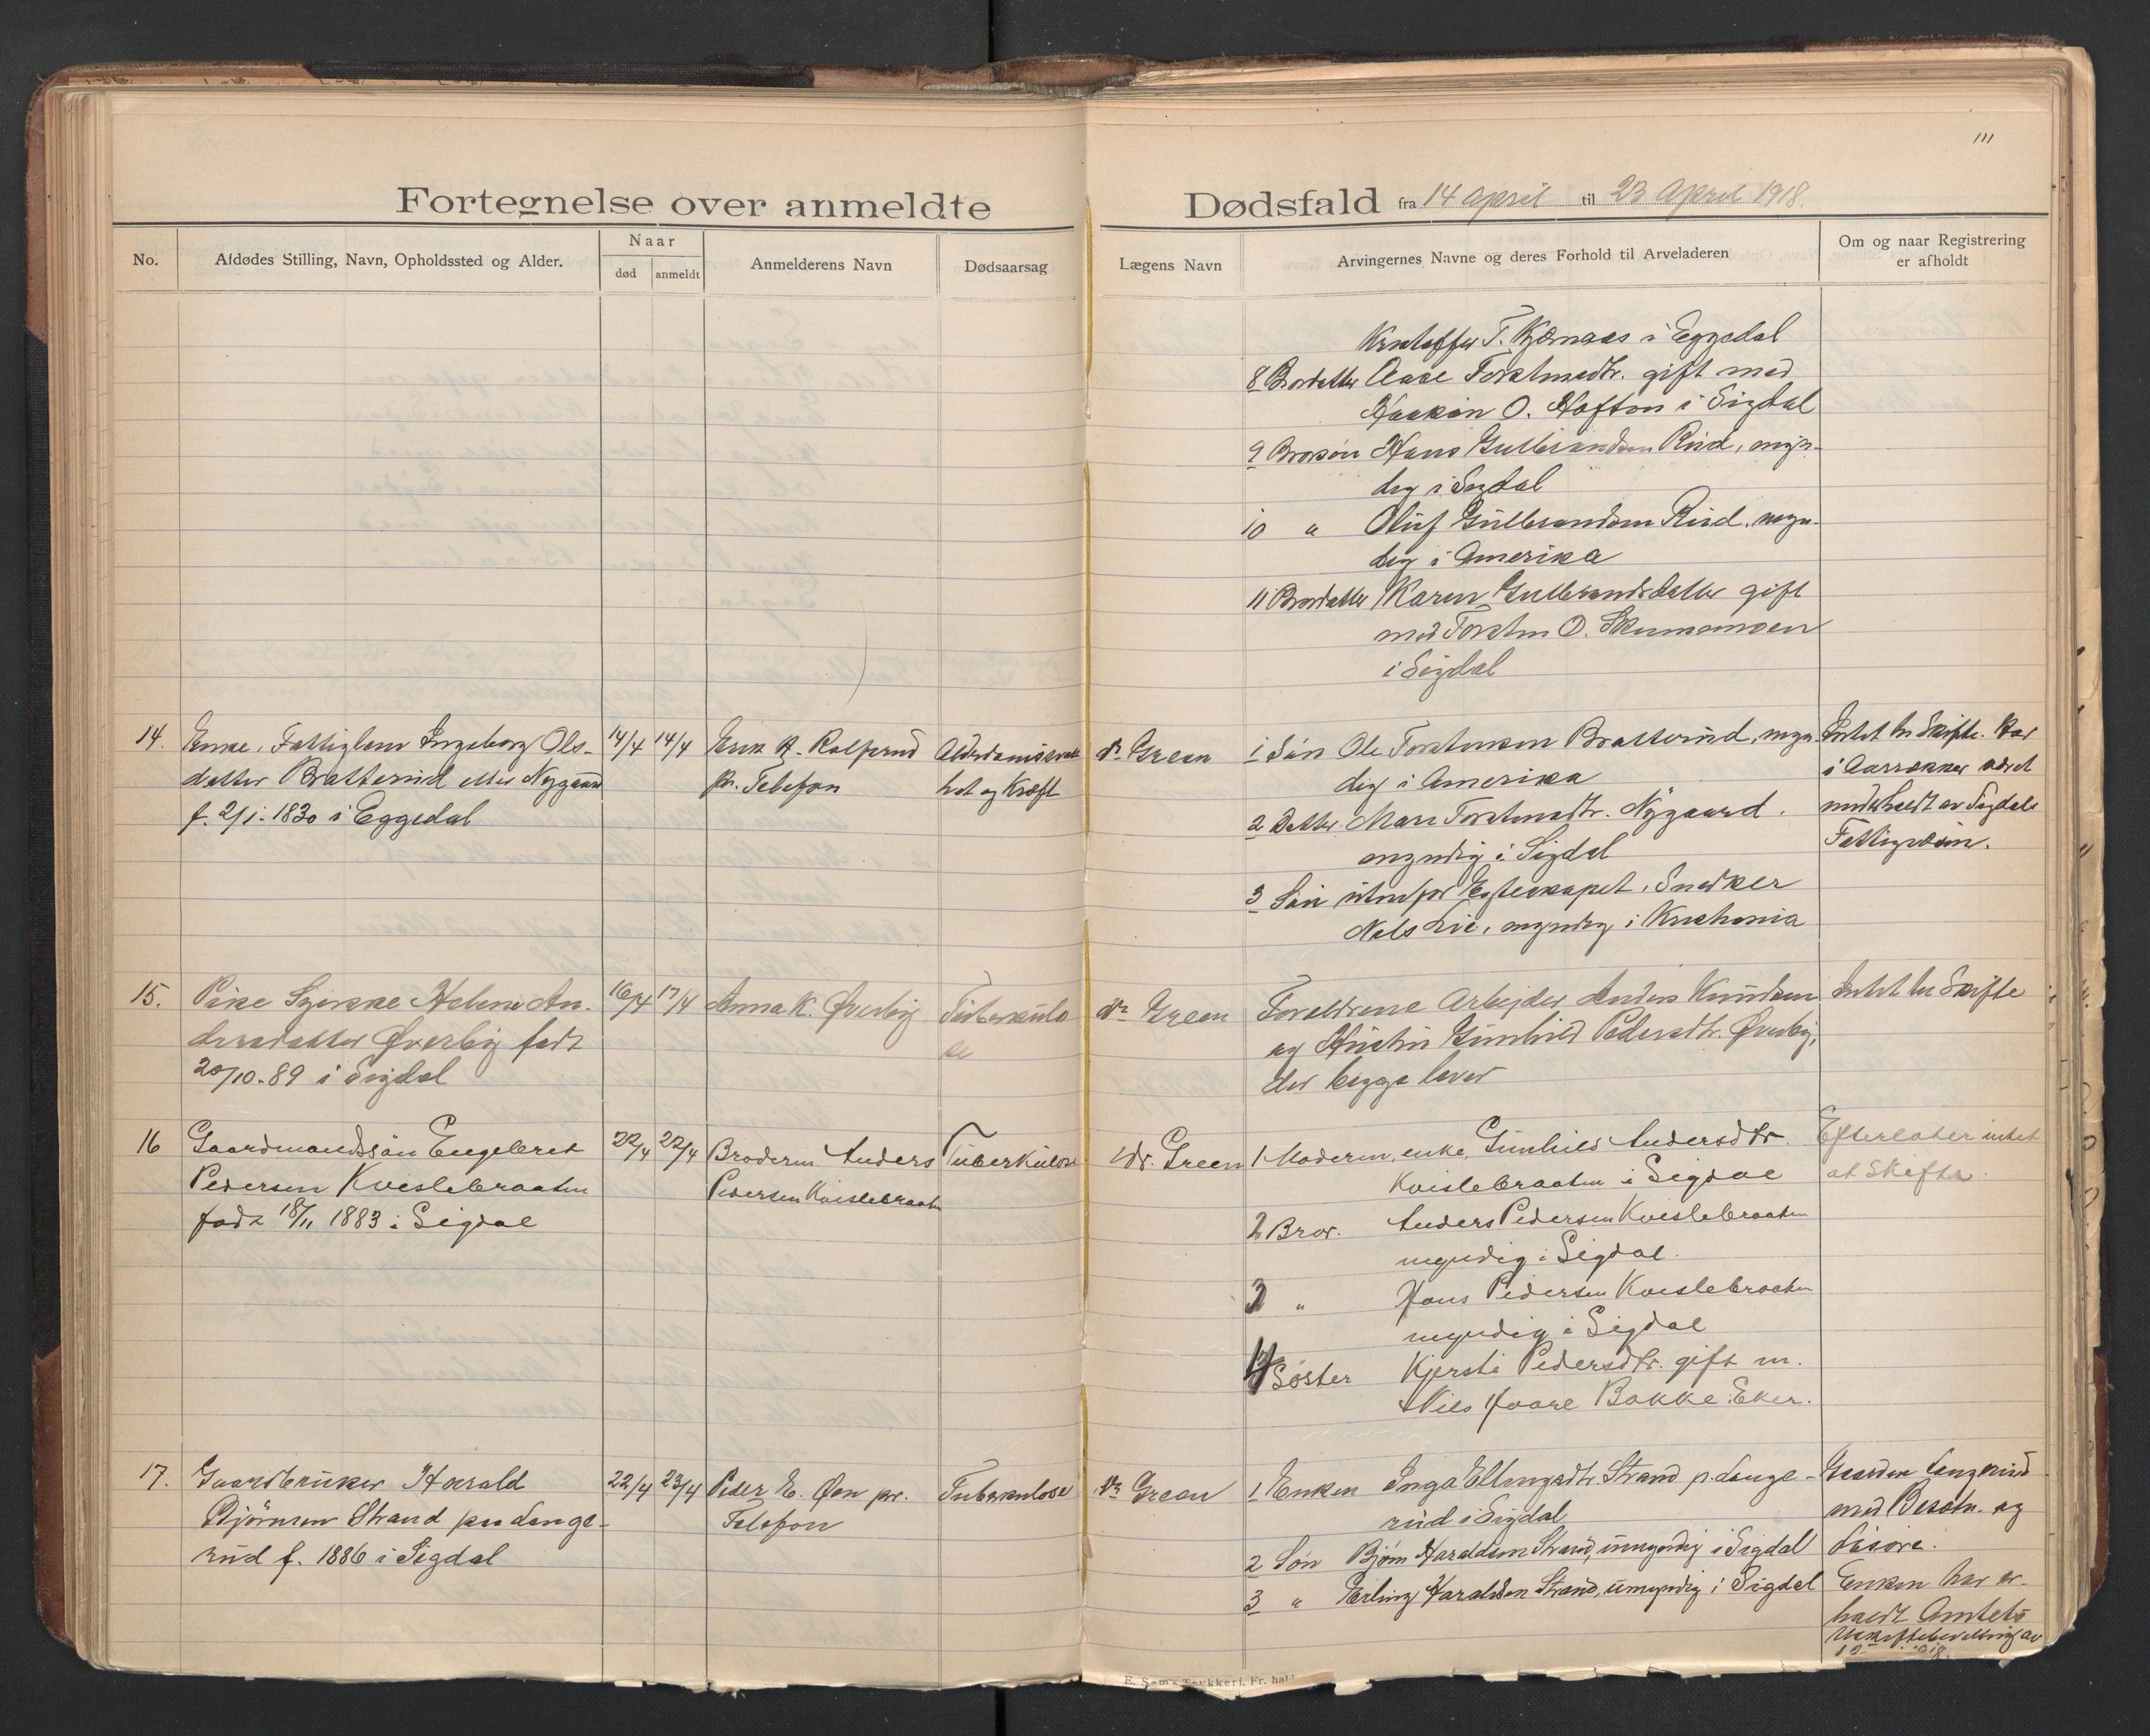 111
Fortegnelse over anmeldte Dødsfald fra 14 april til 23 April 1918.
No.
Afdødes Stilling, Navn, Opholdssted og Alder.
Naar
død
anmeldt
Anmelderens Navn
Dødsaarsag
Lægens Navn
Arvingernes Navne og deres Forhold til Arveladeren
Om og naar Registrering
er afholdt
T. i Eggedal
8 Brordatter Aase Torstensdtr. gift med
Haakon O. Hofton i Sigdal
9 Brorsøn Hans Gulbrandsen Rud, myn-
dig i Sigdal
10 " Oluf Gulbrandsen Rud, myn-
dig i Amerika
11 Brordatter Karen Gulbrandsdatter gift
med Torsten O. Skumsmoen
i Sigdal
14. Enke, Fattiglem Ingeborg Ols-
datter Bratterud eller Nygaard
f. 2/1. 1830 i Eggedal
14/4 14/4
Erik A. Kolsrud
pr. Telefon
Alderdomssvak
het og Kræft
Dr Green
1 Søn Ole Torstensen Bratterud, myn
dig i Amerika
2 Datter Mari Torstensdtr. Nygaard.
myndig i Sigdal
3 Søn utenfor Egteskapet, Snedker
Nils Lie, myndig i Kristiania
Intet til Skifte. Har
i Aarrekker været
underholdt av Sigdals
Fattigvæsen.
15. Pike Helene An-
dersdatter Øverby født
20/10-89 i Sigdal
16/4 17/4
Anna K. Øverby
Tuberkulo
se
Dr Green
Foreldrene Arbejder Anders Knudsen
og Hustru Gunhild Pedersdtr. Øverby,
der begge lever
Intet til Skifte
16 Gaardmandssøn Engebret
Pedersen Kvislebraaten
født 18/11 1883 i Sigdal
22/4 22/4
Broderen Anders
Pedersen Kvislebraaten
Tuberkulose
Dr. Green
1 Moderen, enke, Gunhild Andersdtr.
Kvislebraaten i Sigdal
2 Bror. Anders Pedersen Kvislebraaten
myndig i Sigdal.
3 " Hans Pedersen Kvislebraaten
myndig i Sigdal
4 Søster Kjersti Pedersdtr. gift m.
Nils Hoare Bakke i Eker.
Efterlater intet
at Skifte.
17. Gaardbruker Harald
Bjørnsen Strand paa Lange-
rud f. 1886 i Sigdal
22/4 23/4
Peder E. Øen pr.
Telefon
Tuberkulose
Dr Green
1 Enken Inga Ellingsdtr. Strand p. Lange-
rud i Sigdal
2 Søn Bjørn Haraldsen Strand, umyndig i Sigdal
3 " Erling Haraldsen Strand, umyndig i Sigdal
Gaarden Langerud
med Besætn. og
Løsøre.
Enken har er-
holdt Amtets
Uskiftebevilling av
E. Sem's Trykkeri. Fr.hald